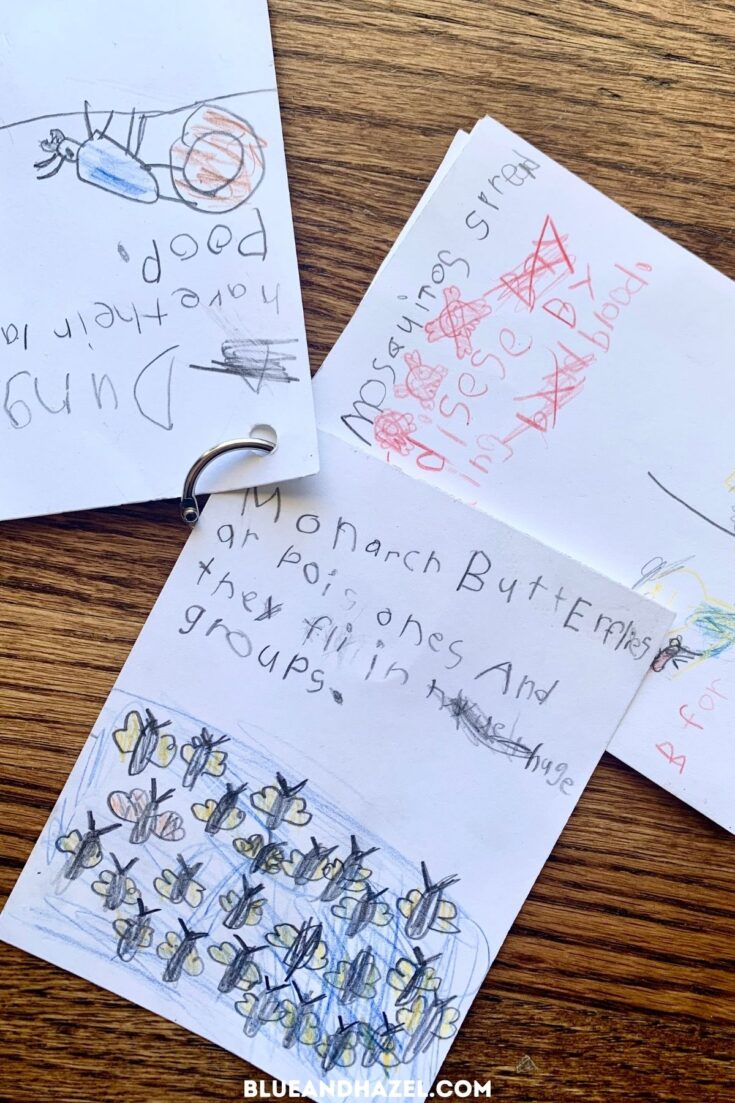 Dung
have their la
poop.
Mosquitos
disese BY
ing blood.
Monarch ButtErflies
ar poisones And
they fli in huge
groups.
for
BLUEANDHAZEL.COM